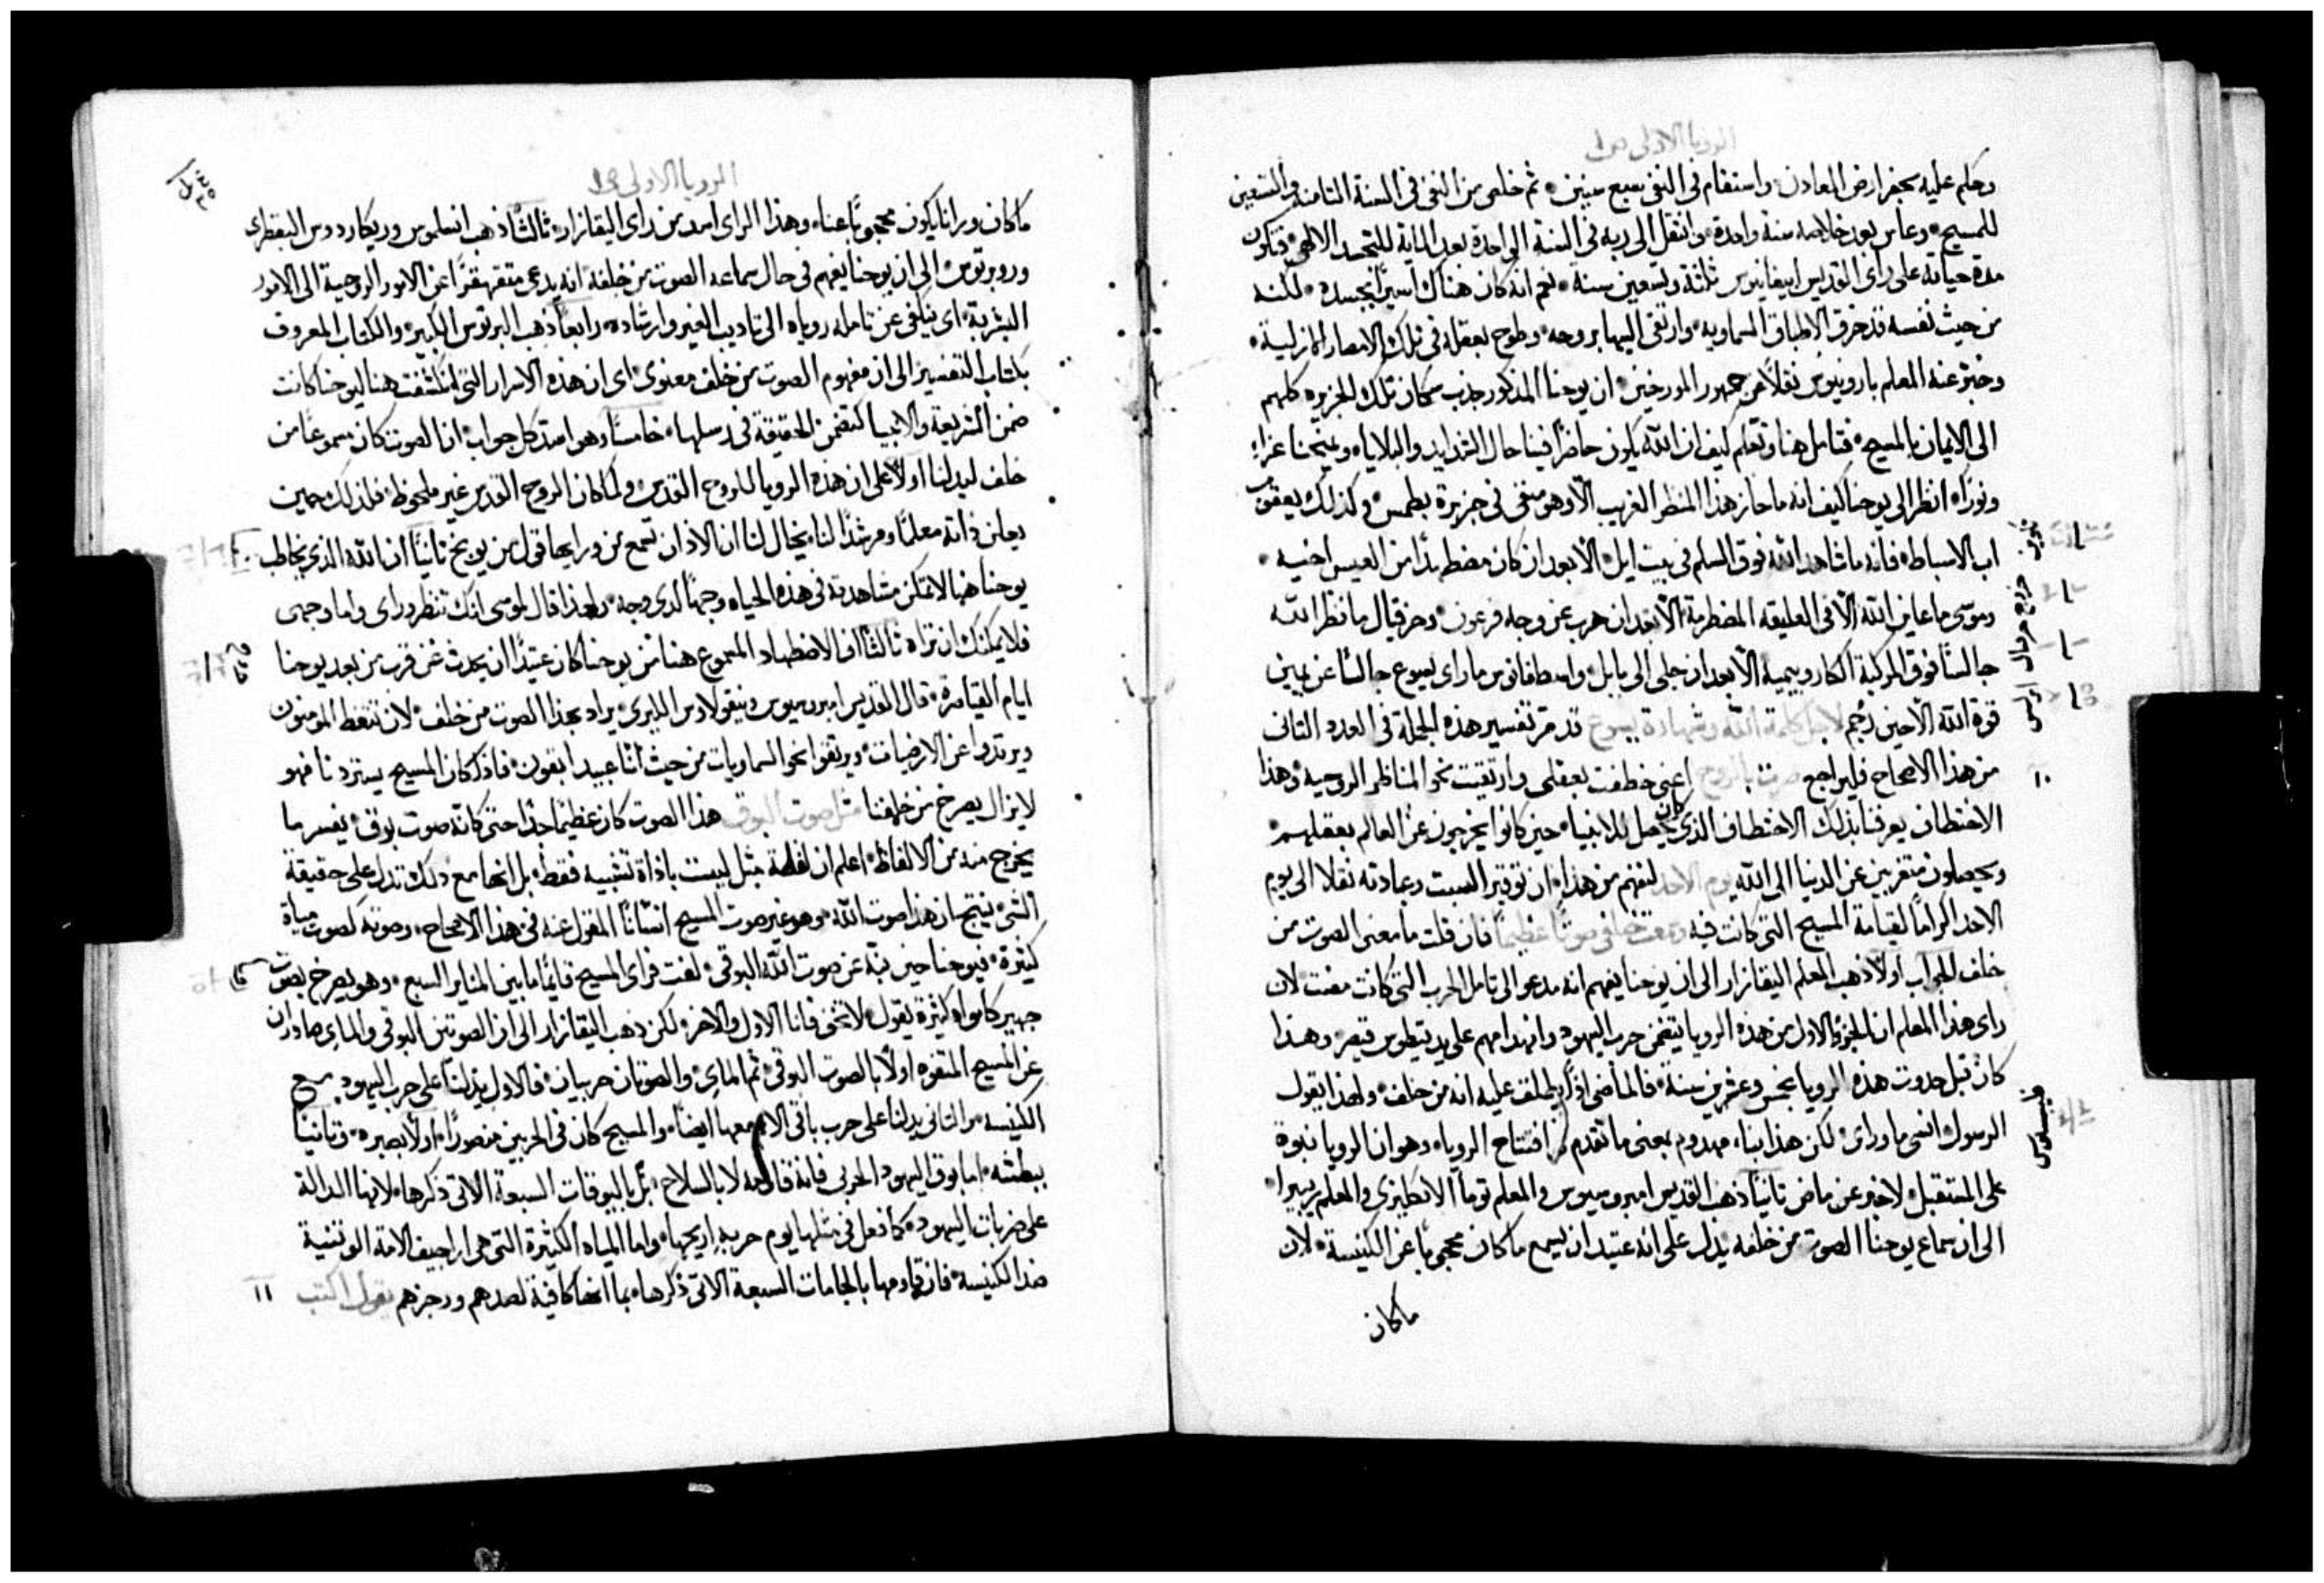 الرويا الاولى ص١
وحكم عليه بحفر ارض المعادن واستقام في النفي بضع سنين ثم خلص من النفي في السنة الثامنة والتسعين
للمسيح وعاش بعد خلاصه سنة واحدة وانتقل الى ربه في السنة الواحدة بعد الماية للتجسد الالهي فتكون
مدة حياته على راي القديس ابيفانيوس ثلثة وتسعين سنة نعم انه كان هناك اسيرًا بجسده لكنه
من حيث نفسه قد خرق الاطباق السماوية وارتقى اليها بروحه وطوح بعقله في تلك الامصار الازلية
وخبر عنه المعلم بارونيوس نقلًا من جمهور المورخين ان يوحنا المذكور جذب سكان تلك الجزيره كلهم
الى الايمان بالمسيح فتامل هنا وتعلم كيف ان الله يكون حاضرًا فينا حال الشدايد والبلايا ويمنحنا عزاء
ونورًا انظر الى يوحنا كيف انه ما حاز هذا المنظر الغريب الا وهو منفي في جزيرة بطمس وكذلك يعقوب
اب الاسباط فانه ما شاهد الله فوق السلم في بيت ايل الا بعد ان كان مضطهدًا من العيس اخيه
وموسى ما عاين الله الا في العليقه المضطرمة الا بعد ان هرب عن وجه فرعون وحزقيال ما نظر الله
جالسًا فوق المركبة الكاروبيمية الا بعد ان جلي الى بابل واسطفانوس ما راى يسوع جالسًا عن يمين
قوة الله الا حين رجم لاجل كلمة الله وشهادة يسوع قد مر تفسير هذه الجملة في العدد الثاني
من هذا الاصحاح فليراجع صرت بالروح اعني خطفت بعقلي وارتقيت نحو المناظر الروحيه وهذا ١٠
الاختطاف يعرفنا بذلك الاختطاف الذي كان يحصل للانبيا حين كانوا يخرجون عن العالم بعقلهم
ويحصلون متغربين عن الدنيا الى الله يوم الاحد لنفهم من هذا ان توقير السبت وعبادته نقلا الى يوم
الاحد اكرامًا لقيامة المسيح التي كانت فيه وسمعت خلفي صوتًا عظيمًا فان قلت ما معنى الصوت من
خلف الجواب اولًا ذهب المعلم اليقازار الى ان يوحنا يفهم انه مدعو الى تامل الحرب التي كانت مضت لان
راي هذا المعلم ان الجزو الاول من هذه الرويا يتضمن حرب اليهود وانهدامهم على يد تيطوس قيصر وهذا
كان قبل حدوث هذه الرويا بخمس وعشرين سنة فالماضي اذًا يطلق عليه انه من خلف ولهذا يقول
الرسول انسى ما وراي لكن هذا البناء مهدوم بمعنى ما تقدم في افتتاح الرويا وهو ان الرويا نبوة
على المستقبل لا خبر عن ماض ثانيًا ذهب القديس امبروسيوس والمعلم توما الانكليزي والمعلم ربيرا
الى ان سماع يوحنا الصوت من خلفه يدل على انه عتيد ان يسمع ما كان محجوبًا عن الكنيسة لان
ماكان
الرويا الاولى ص١
ماكان ورانا يكون محجوبًا عنا وهذا الراي اسد من راي اليقازار ثالثًا ذهب انسلموس وريكاردوس البقطري
وروبرتوس الى ان يوحنا يفهم في حال سماعه الصوت من خلفه انه يدعى متقهقرًا عن الامور الروحية الى الامور
البشرية اي ينكفي عن تامله روياه الى تاديب الغير وارشاده رابعًا ذهب البرتوس الكبير والكتاب المعروف
بكتاب التفسير الى ان مفهوم الصوت من خلف معنوي اي ان هذه الاسرار التي انكشفت هنا ليوحنا كانت
ضمن الشريعة والانبيا كتضمن الحقيقة في رسلها خامسًا وهو اسد كل جواب ان الصوت كان مسموعًا من
خلف ليدلنا اولًا على ان هذه الرويا للروح القدس ولما كان الروح القدس غير ملحوظ فلذلك حين
يعلن ذاته معلمًا ومرشدًا لنا يخال لنا ان الاذان تسمع من ورايها قول من يوبخ ثانيًا ان الله الذي يخاطب
يوحنا هنا لا تمكن مشاهدته في هذه الحياه وجهًا لدى وجه ولهذا قال لموسى انك تنظر وراي واما وجهي
فلا يمكنك ان تراه ثالثًا ان الاضطهاد المسموع هنا من يوحنا كان عتيدًا ان يحدث عن قرب من بعد يوحنا
ايام القيامرة قال القديس امبروسيوس ونيقولاوس الليري يراد بهذا الصوت من خلف لان تتعظ المومنون
ويرتدوا عن الارضيات ويرتقوا نحو السماويات من حيث اننا عبيد ابقون فاذ كان المسيح يستردنا فهو
لا يزال يصرخ من خلفنا مثل صوت البوق هذا الصوت كان عظيمًا جدًا حتى كانه صوت بوق يفسر ما
يخرج منه من الالفاظ اعلم ان لفظة مثل ليست باداة تشبيه فقط بل انها مع ذلك تدل على حقيقة
الشي ينتج ان هذا صوت الله وهو غير صوت المسيح انسانًا المقول عنه في هذا الاصحاح وصوته كصوت مياة
كثيرة فيوحنا حين نبه عن صوت الله البوقي لفت فراى المسيح قايمًا ما بين المناير السبع وهو يصرخ بصوت
جهير كامواه كثيرة يقول لا تخف فانا الاول والاخر لكن ذهب اليقازار الى ان الصوتين البوقي والماي صادران
عن المسيح المتفوه اولًا بالصوت البوقي ثم الماي والصوتان حربيان فالاول يدلنا على حرب اليهود مع
الكنيسه والثاني يدلنا على حرب باقي الامم معها ايضًا والمسيح كان في الحربين منصورًا اولًا بصبره وثانيًا
ببطشه اما بوق اليهود الحربي فانه قاتله لا بالسلاح بل بالبوقات السبعة الاتي ذكرها لانها الدالة
على ضربات اليهود كما فعل في مثلها يوم حربه اريحا واما المياه الكثيرة التي هي اراجيف الامة الوثنية
ضد الكنيسة فانه قاومها بالجامات السبعة الاتي ذكرها بما انها كافية لصدهم ورجزهم يقول اكتب ١١